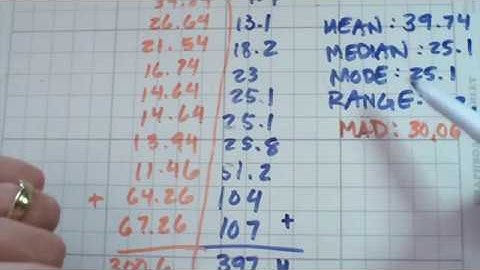 26.64 13.1 MEAN: 39.74
21.54 18.2 MEDIAN: 25.1
16.74 23 MODE: 25.1
14.64 25.1 RANGE:
14.64 25.1 MAD: 30.06
13.94 25.8
11.46 51.2
+ 64.26 104
67.26 107 +
300.6 397.4